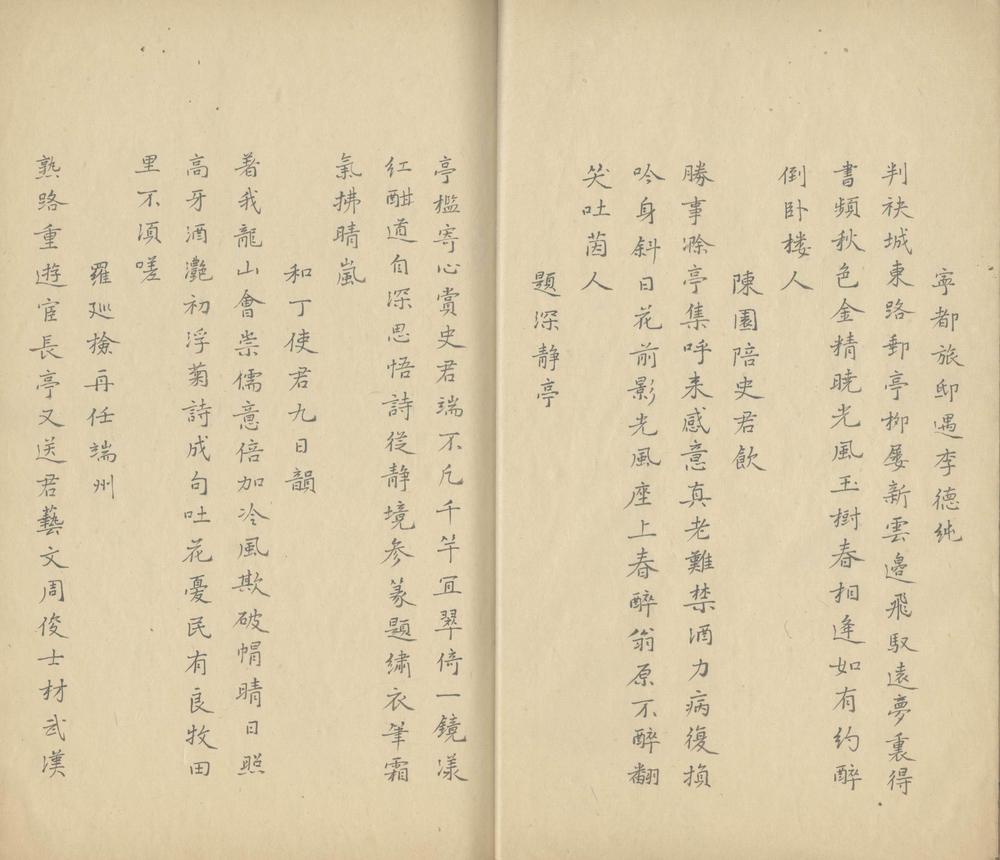 寧都旅邸遇李德純
判袂城東路郵亭栁屡新雲邉飛馭逺夢裏得
書頻秋色金精曉光風玉樹春相逢如有約醉
倒卧楼人
陳園陪史君飲
勝事滁亭集呼来感意真老難禁酒力病復損
吟身斜日花前影光風座上春醉翁原不醉翻
笑吐茵人
題深靜亭
亭檻寄心賞史君端不凢千竿宜翠倚一鏡漾
紅酣道自深思悟詩從靜境参篆題繡衣筆霜
氣拂晴嵐
和丁使君九日韻
著我龍山會崇儒意倍加冷風欺破帽晴日照
高牙酒灔初浮菊詩成句吐花憂民有良牧田
里不湏嗟
羅廵撿再任端州
熟路重遊宦長亭又送君藝文周俊士材武漢